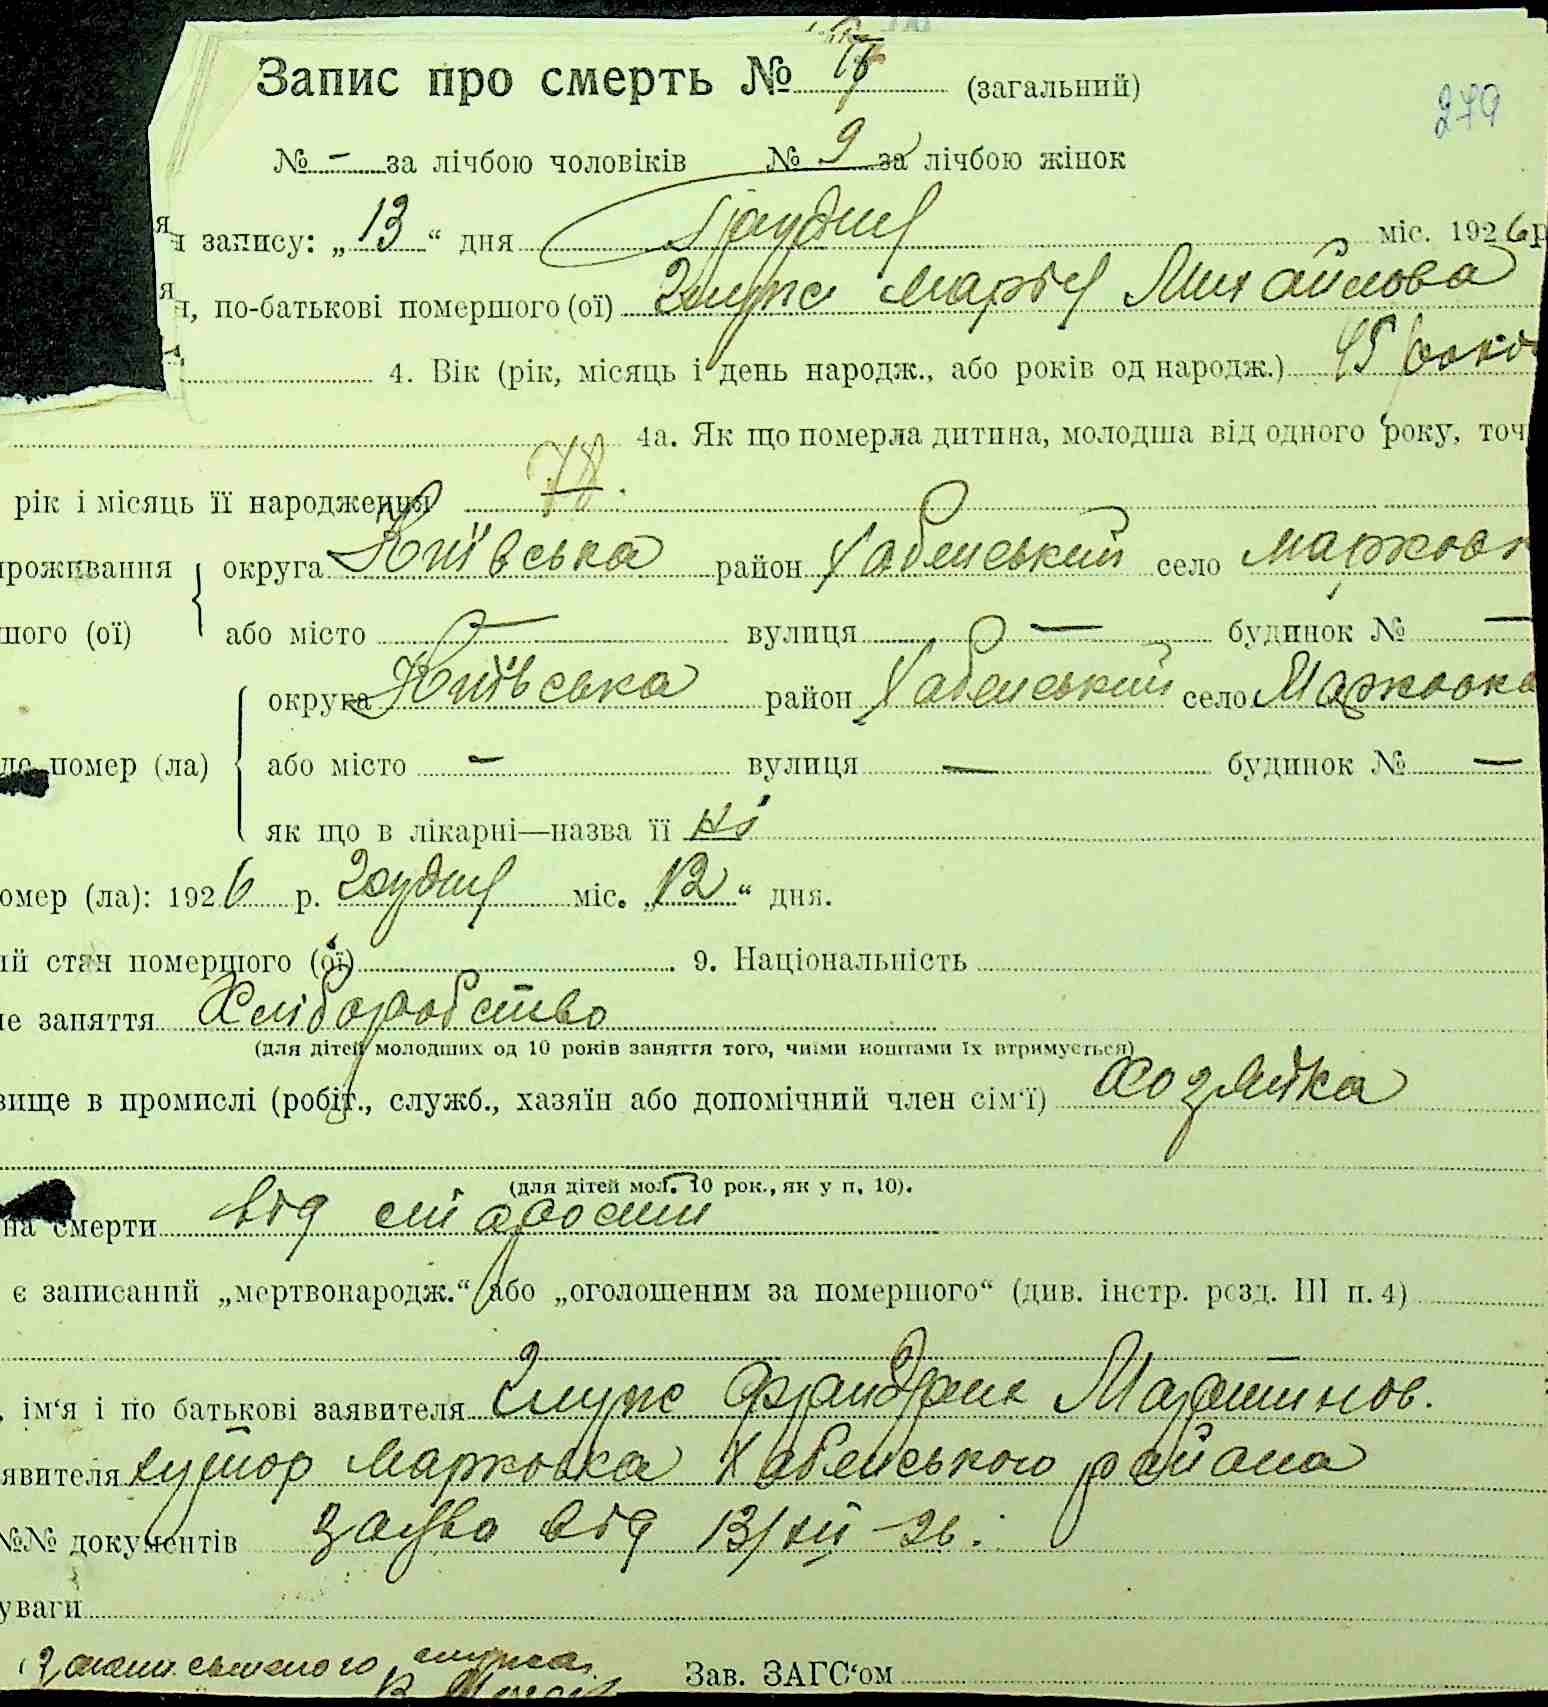 Запис про смерть № (загальний)
279
№ - за лічбою чоловіків № 9 за лічбою жінок
я запису: „13“ дня Грудня міс. 1926 р
я, по-батькові помершого (ої) Марія Михайлова
4. Вік (рік, місяць і день народж., або років од народж.)
4а. Як що померла дитина, молодша від одного року, точ
рік і місяць її народження 78.
проживання округа Київська район Хабенський село Марковк
шого (ої) або місто — вулиця — будинок № —
округа Київська район Хабенський село Марковка
де помер (ла) або місто — вулиця — будинок № —
як що в лікарні—назва її ні
омер (ла): 1926 р. Грудня міс. „12“ дня.
ий стан померщого (ої) 9. Національність
не заняття Хліборобство
(для дітей молодших од 10 років заняття того, чиїми коштами їх втримується)
вище в промислі (робіт., служб., хазяїн або допомічний член сім‘ї) Хозяйка
(для дітей мол. 10 рок., як у п. 10).
на смерти від старости
є записаний „мертвонародж.“ або „оголошеним за помершого“ (див. інстр. розд. III п. 4)
, ім‘я і по батькові заявителя Мартинов.
явителя хутор Марковка Хабенського района
№№ документів заява від 13/XII-26.
уваги
Зав. ЗАГС‘ом